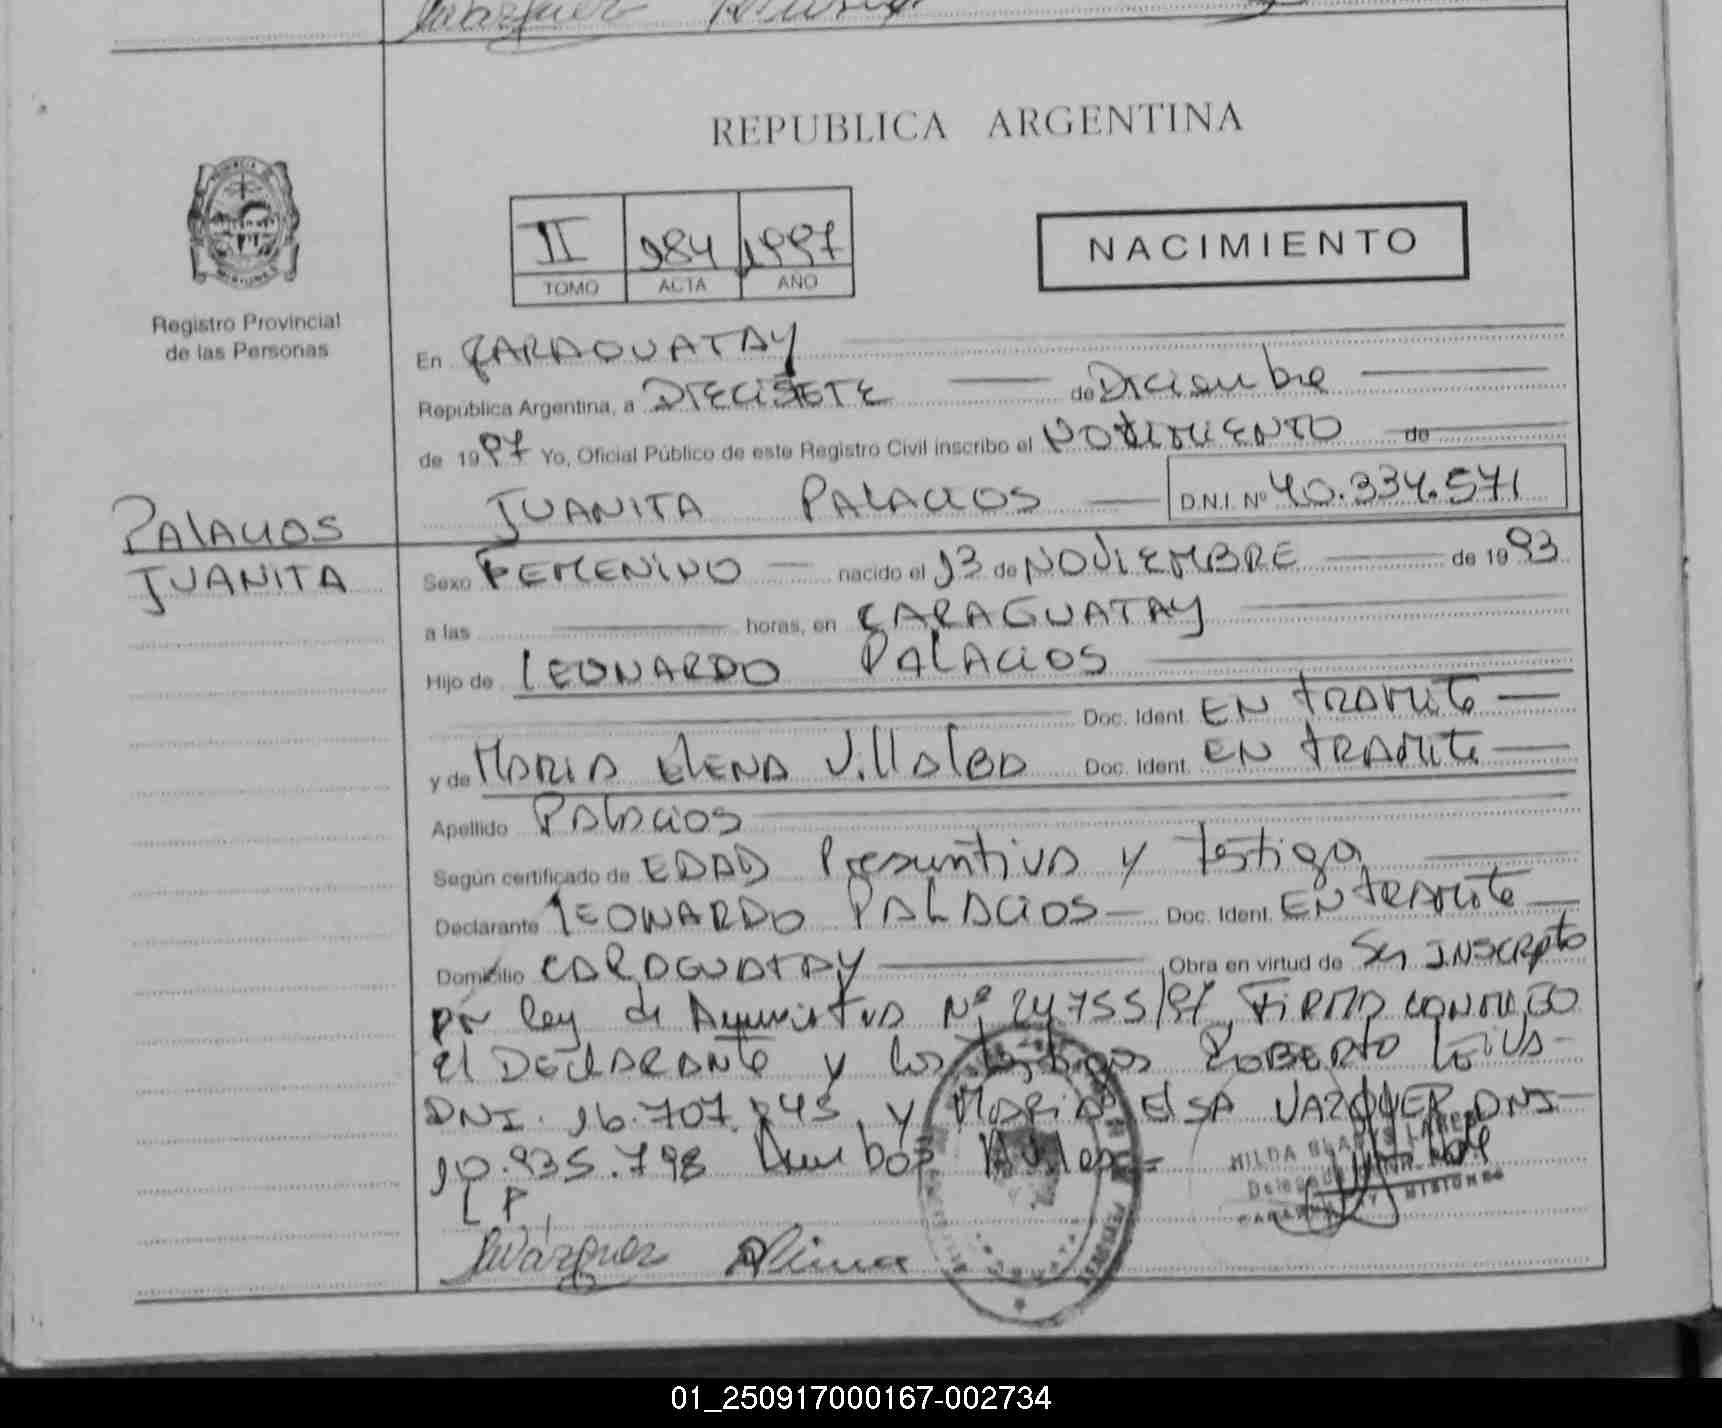 REPUBLICA ARGENTINA
II 184 1997
TOMO ACTA AÑO
NACIMIENTO
Registro Provincial
de las Personas
En CARAGUATAY
República Argentina, a DIECISIETE de Diciembre
de 1997 Yo, Oficial Público de este Registro Civil inscribo el NACIMIENTO de
JUANITA PALACIOS D.N.I. Nº 40.334.571
PALACIOS
JUANITA
Sexo FEMENINO nacido el 13 de NOVIEMBRE de 1993
a las horas, en CARAGUATAY
Hijo de LEONARDO PALACIOS
Doc. Ident. EN tRAMItE
y de MARIA ELENA VillAlBA Doc. Ident. EN tRAMItE
Apellido PALACIOS
Según certificado de EDAD Presuntiva y testigo
Declarante LEONARDO PALACIOS Doc. Ident. EN tRAMItE
Domicilio CARAGUATAY Obra en virtud de Ser INSCRIpto
por ley de Amnistia Nº 24755/97, FIRMA CONMIGO
El DEClARANtE y los testigos ROBERTO LEIVA
DNI. 16.707.845 y MARIA ElSA VAZQUEZ DNI
10.935.798 Ambos
L P
MILDA GLADYS
MISIONES
01_250917000167-002734